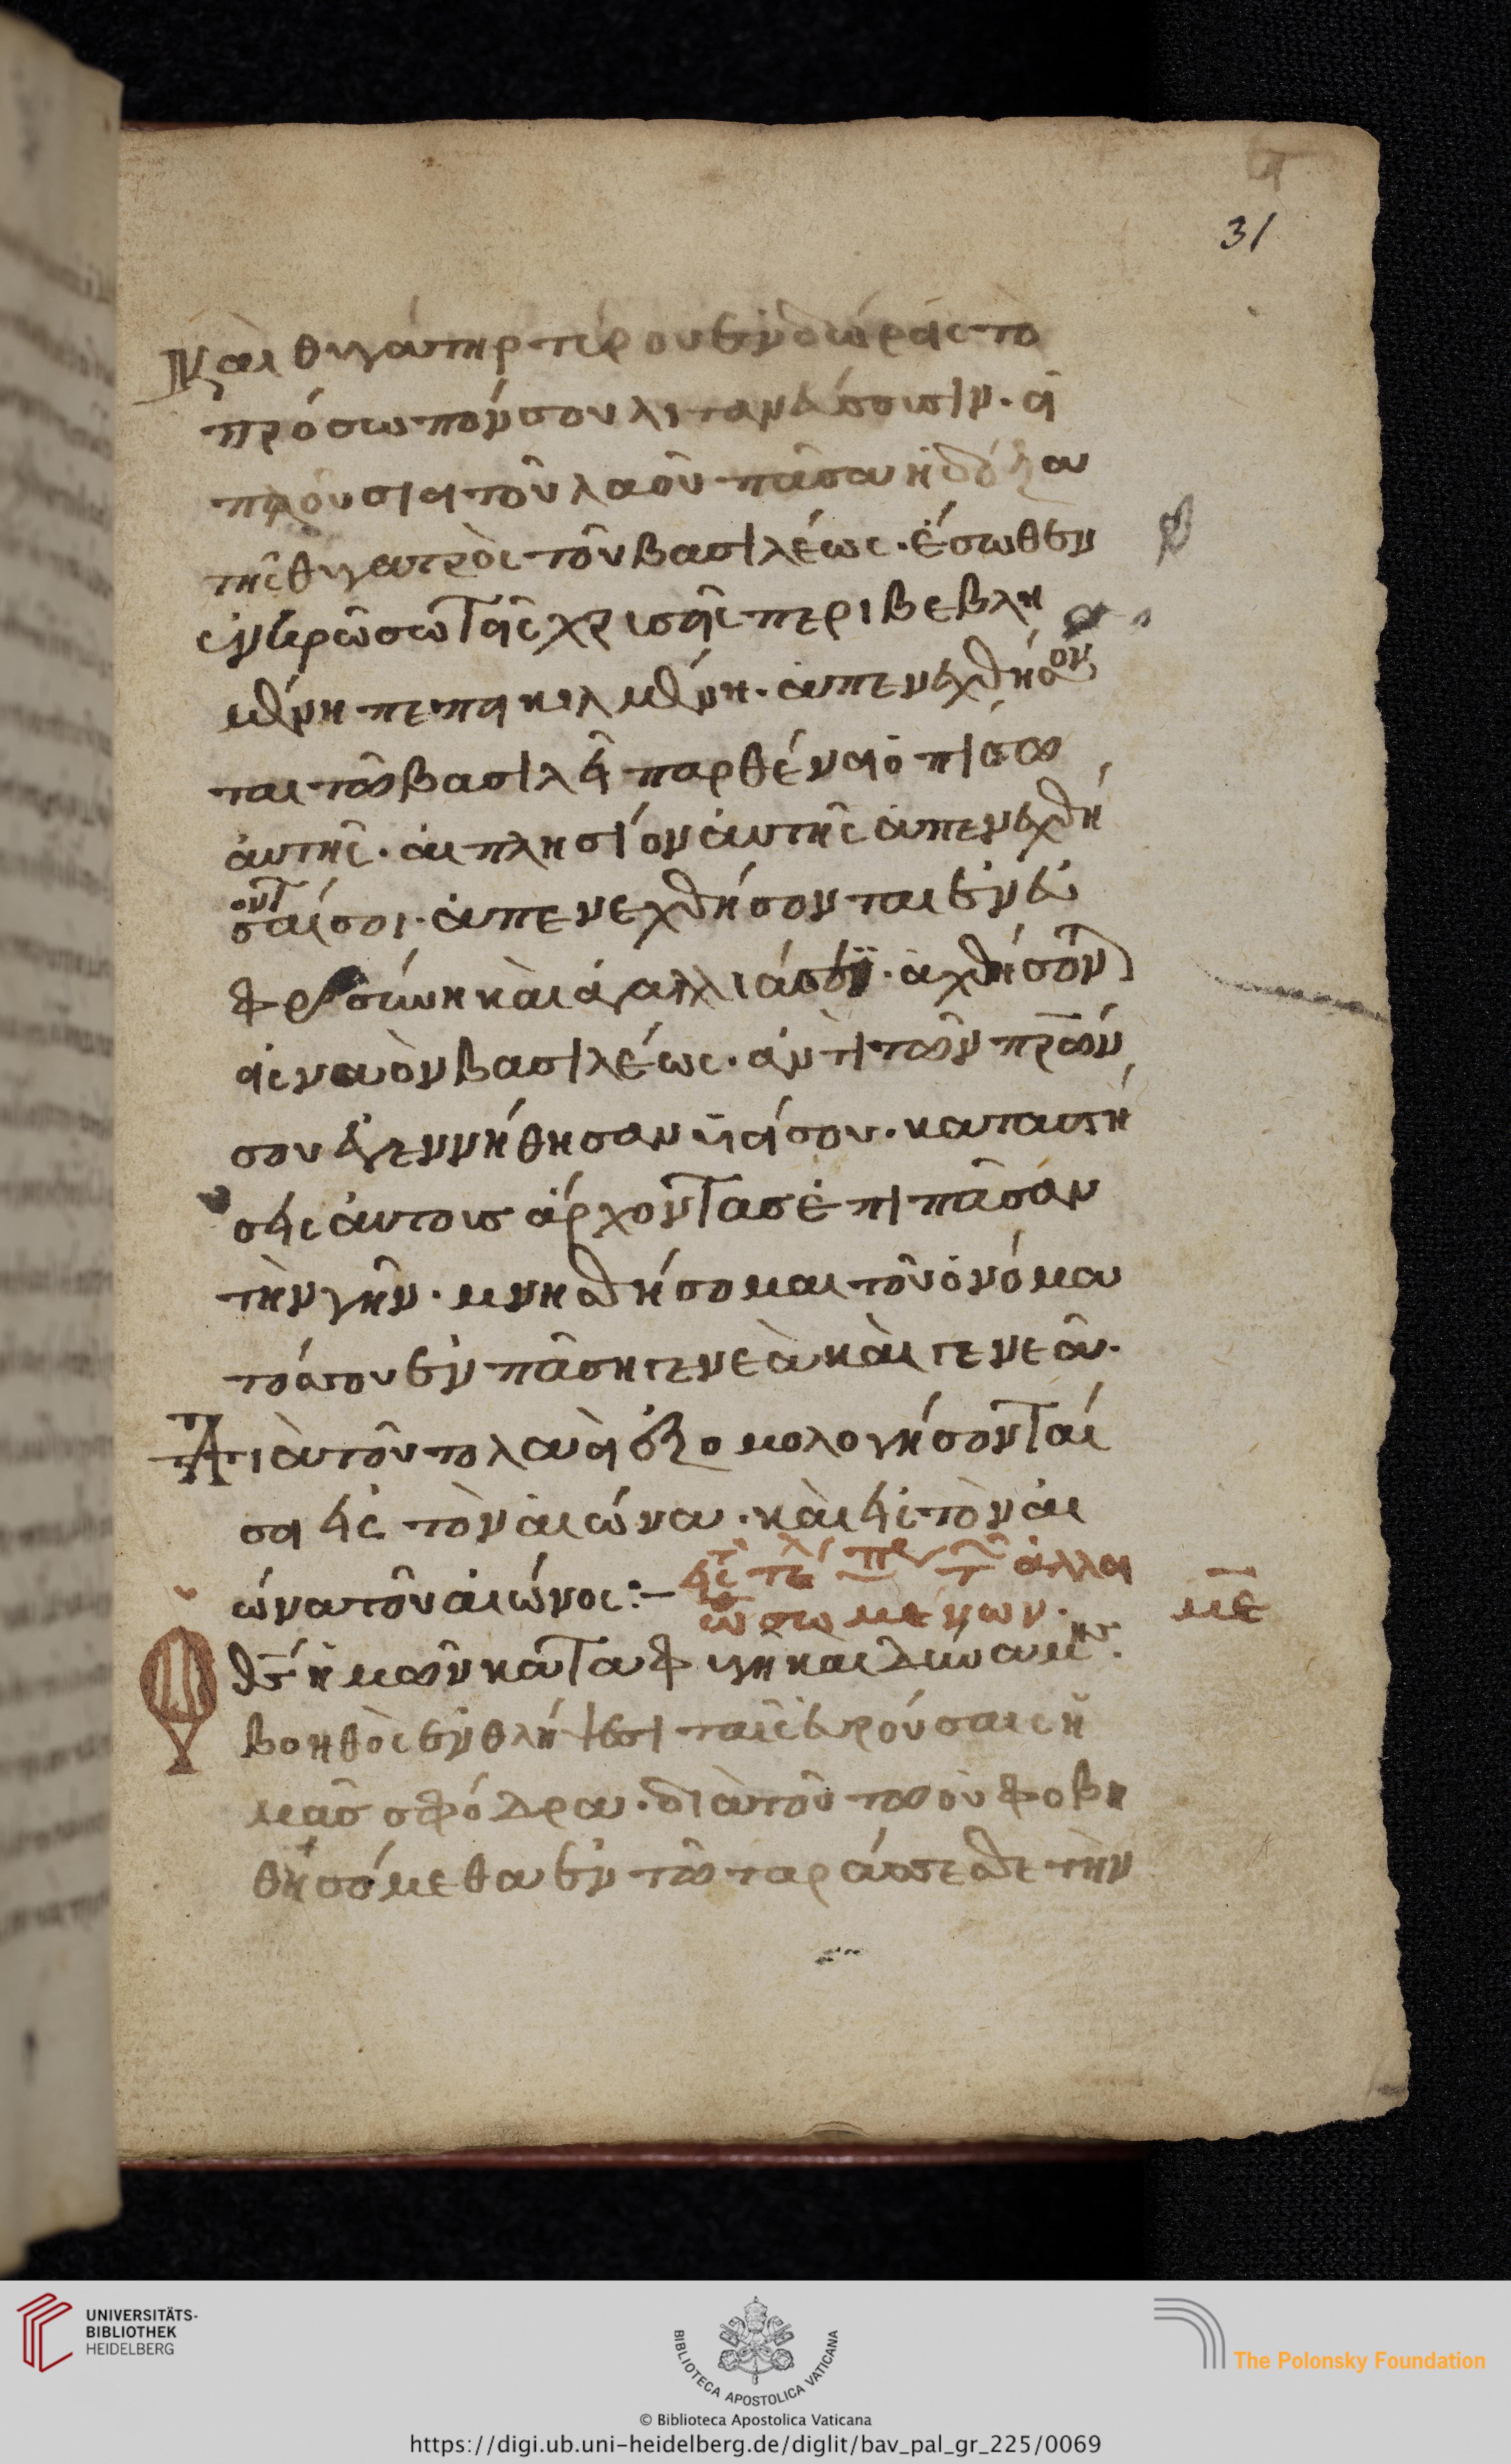 31
Καὶ θυγάτηρ τύρου ἐν δώροις τὸ
πρόσωπόν σου λιτανεύσουσιν · οἱ
πλούσιοι τοῦ λαοῦ πᾶσα ἡ δόξα
τῆς θυγατρὸς τοῦ βασιλέως · ἔσωθεν
ἐν κρωσωτοῖς χρυσοῖς περιβεβλη
μένη πεποικιλμένη · ἀπενεχθήσον
ται τῶ βασιλεῖ παρθένοι ὀπίσω
ἀυτῆς · ἁι πλησίον ἀυτῆς ἀπενεχθή
σονταί σοι · ἀπενεχθήσονται ἐν ἐυ
φροσύνη καὶ ἀγαλλιάσει · ἀχθήσοντ
εἰς ναὸν βασιλέως · ἀντὶ τῶν πρων
σου ἐγεννήθησαν ὑιοί σου · καταστή
σεις ἀυτοὺς ἄρχοντασ ἐπι πᾶσαν
τὴν γῆν · μνησθήσομαι τοῦ ὀνόμα
τόσ σου ἐν πάση γενεὰ καὶ γενεᾶ ·
Διὰ τοῦτο λαὸι ἐξομολογήσονταί
σοι εἰς τὸν ἀιώνα · καὶ εἰς τὸν ἀι
ώνα τοῦ ἀιώνος :- εἰς τὸ τέλ ὑπὲρ τῶν ἀλλοι
ωθησωμένων · με
Ο θς ἡμῶν καταφυγὴ καὶ δύναμις ·
βοηθὸς ἐν θλίψεσι ταῖς ἑυρούσαις ἡ
μᾶσ σφόδρα · διὰ τοῦτο οὐ φοβη
θησόμεθα ἐν τῶ ταράσσεσθε τὴν
UNIVERSITÄTS-
BIBLIOTHEK
HEIDELBERG
BIBLIOTECA APOSTOLICA VATICANA
The Polonsky Foundation
© Biblioteca Apostolica Vaticana
https://digi.ub.uni-heidelberg.de/diglit/bav_pal_gr_225/0069